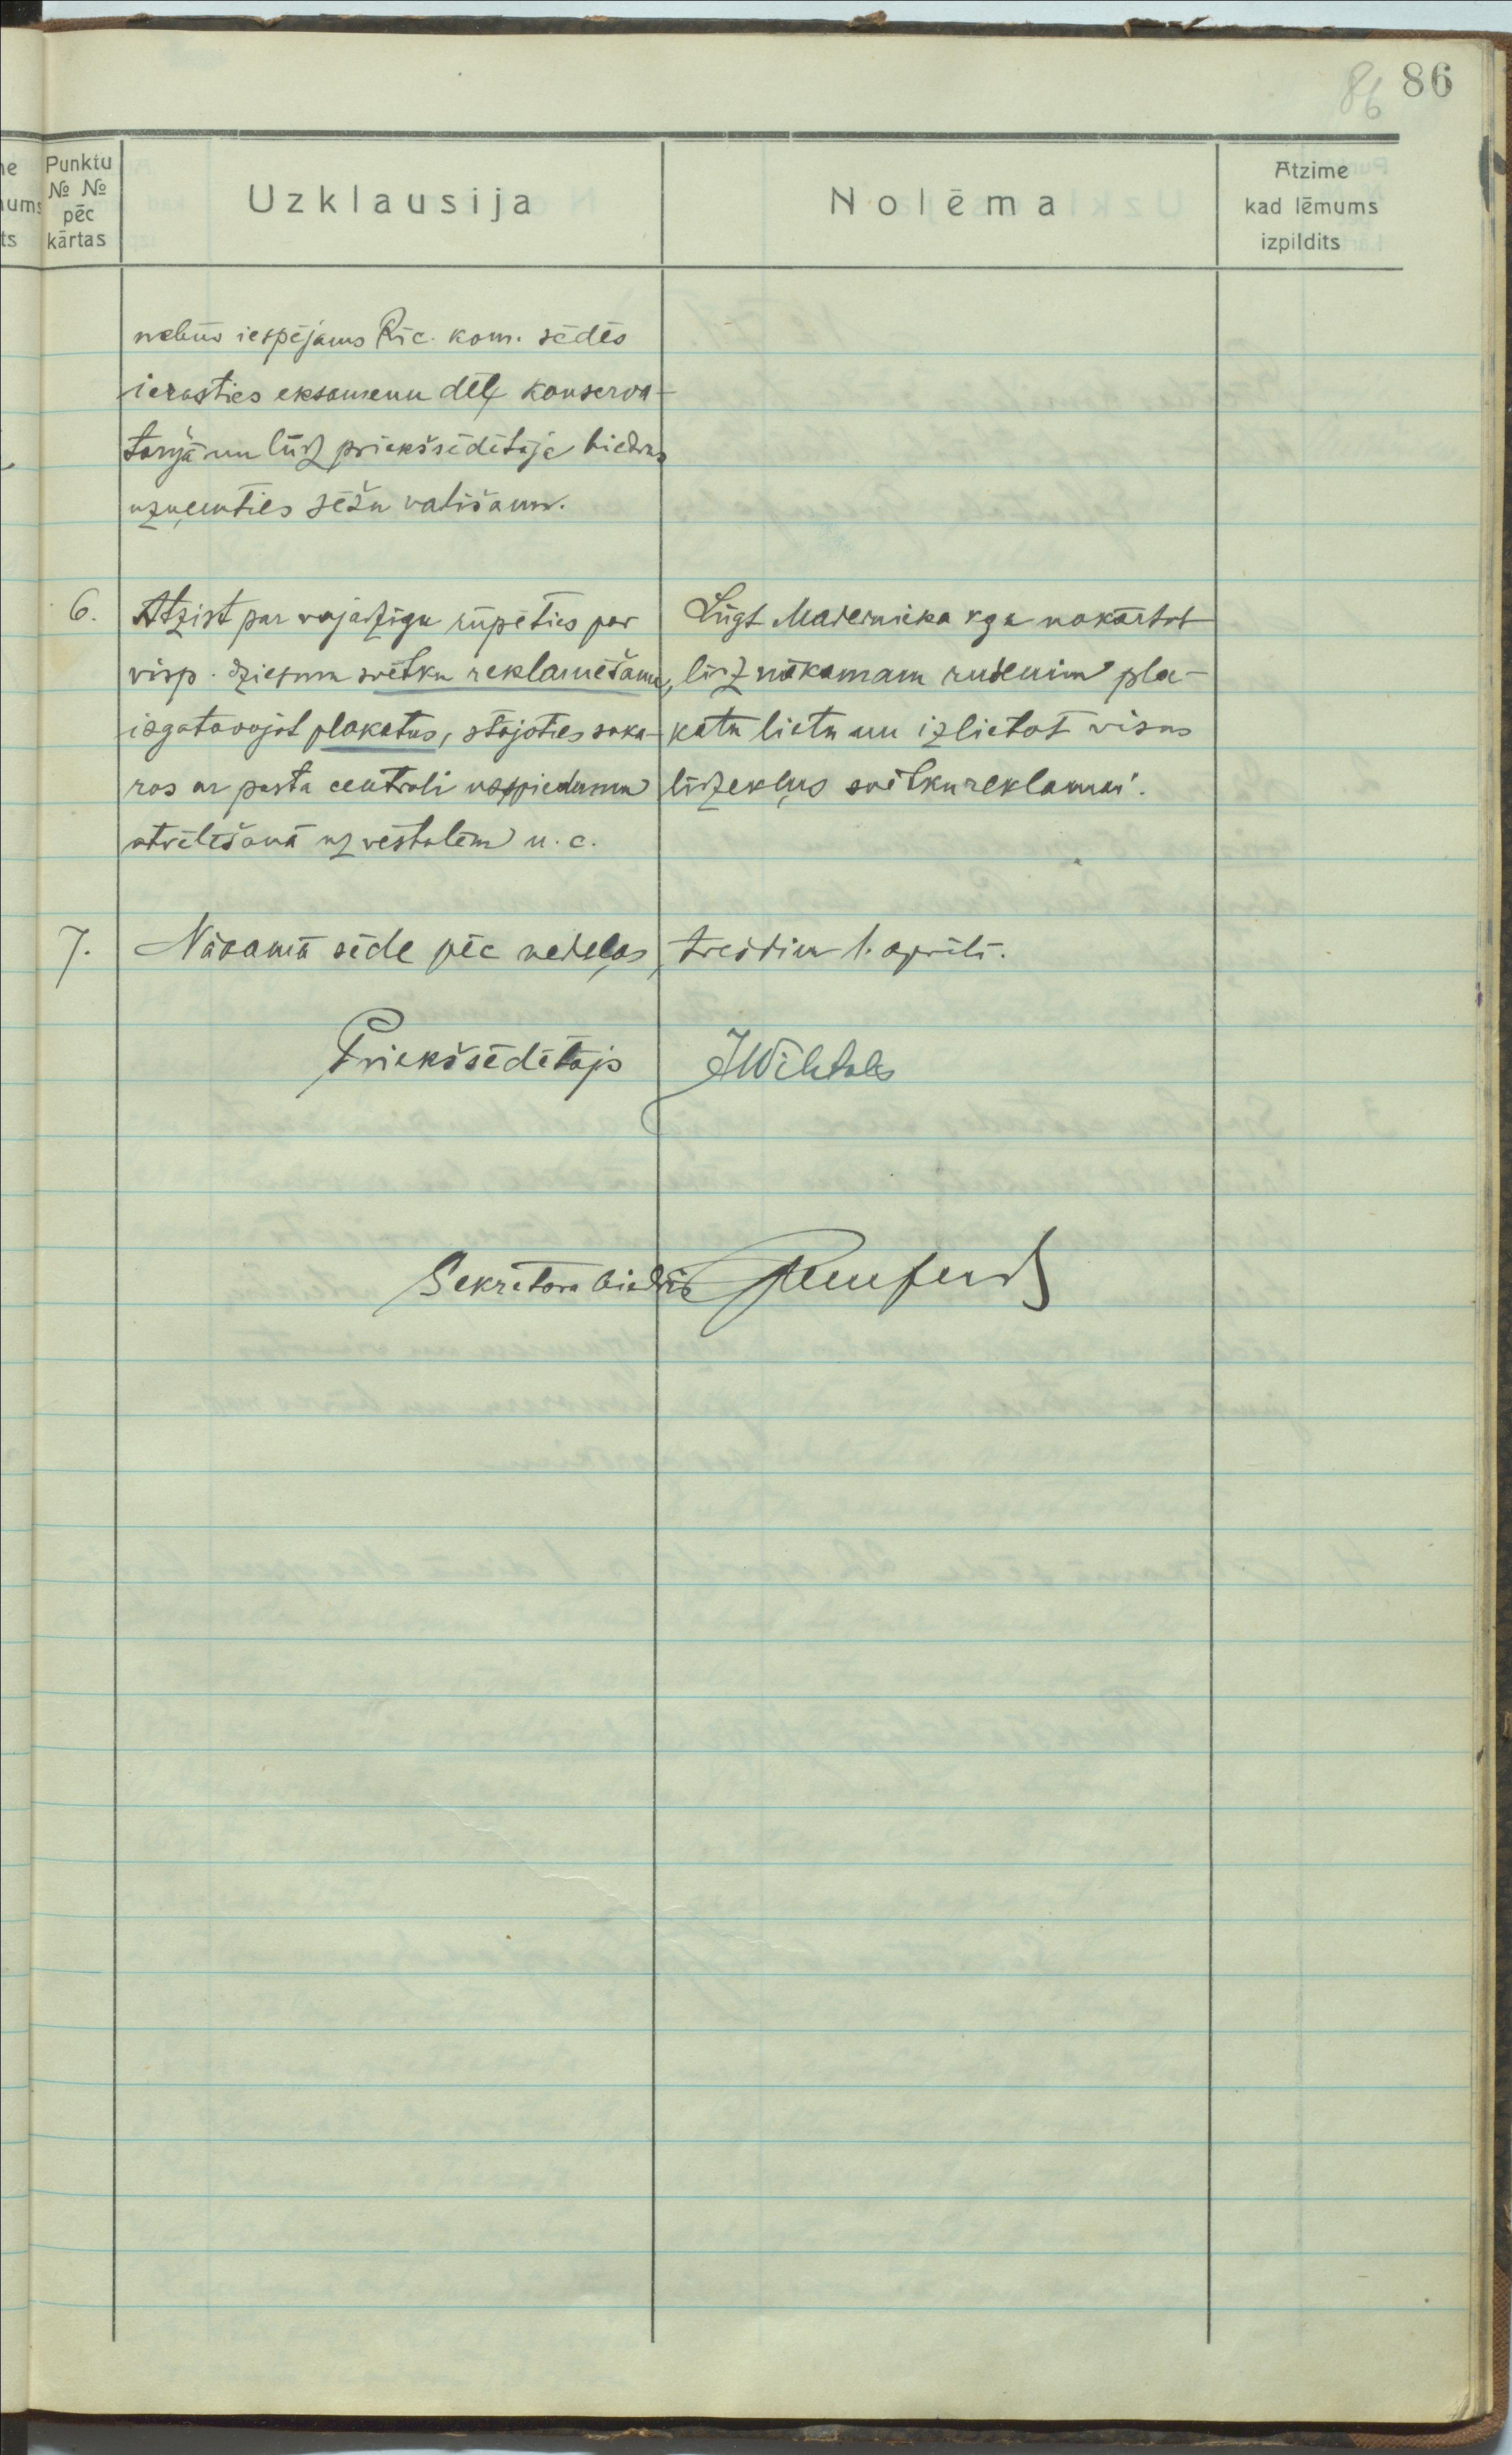 86
86
Punktu
№ №
pēc
kārtas
Uzklausija
Nolēma
Atzime
kad lēmums
izpildits
nebūs iespējams Rīc. kom. sēdēs
ierasties eksamenu dēļ konserva-
torijā un lūdz priekšsēdētāja biedrus
uzņemties sēžu vadīšanu.
6.
Atzīst par vajadzīgu rūpēties par
visp. dziesmu svētku reklamēšanu,
izgatavojot plakatus, stājoties saka-
ros ar pasta centrali uzspieduma
atvēlēšanā uz vēstulēm u.c.
Lūgt Madernieka kgu nokārtot
līdz nākamam rudenim pla-
katu lietu un izlietot visus
līdzekļus svētku reklamai.
7.
Nākamā sēde pēc nedēļas,
trešdien 1. aprīlī.
Priekšsēdētājs
JWihtols
Sekretara biedris